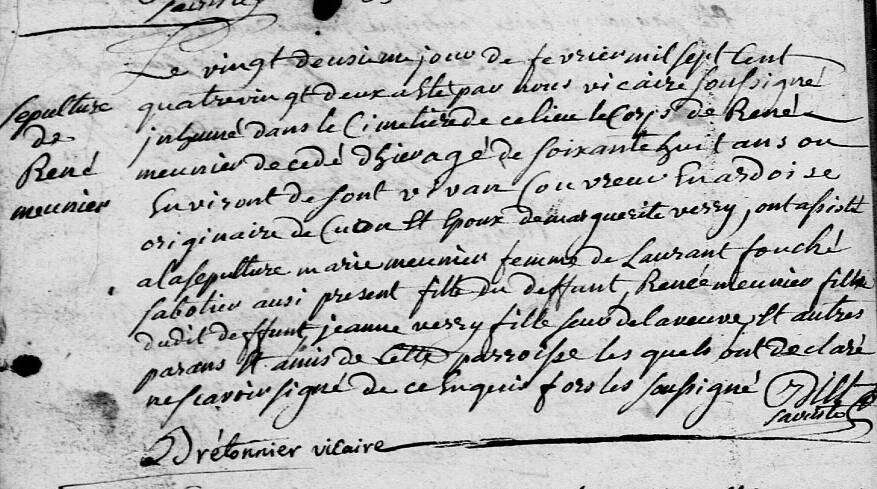 Le vingt deusieme jour de fevrier mil sept Cent
quatrevingt deux a été par nous vicaire soussigné
inhumé dans le Cimetiere de ce lieu le Corps de René
meunier decedé d'hier agé de soixante huit ans ou
Environt de sont vivan Couvreur En ardoise
originaire de Cuon Et Epoux de marguerite verry, ont assisté
a la sepulture marie meunier femme de Laurant fouché
sabotier ausi present fille du deffunt, Renée meunier fille
dudit deffunt jeanne verry fille seur de la veuve, Et autres
parans Et amis de Cette parroisse les quels ont declaré
ne scavoir signé de ce Enquis fors les soussigné
Brétonnier vicaire
sepulture
de
René
meunier